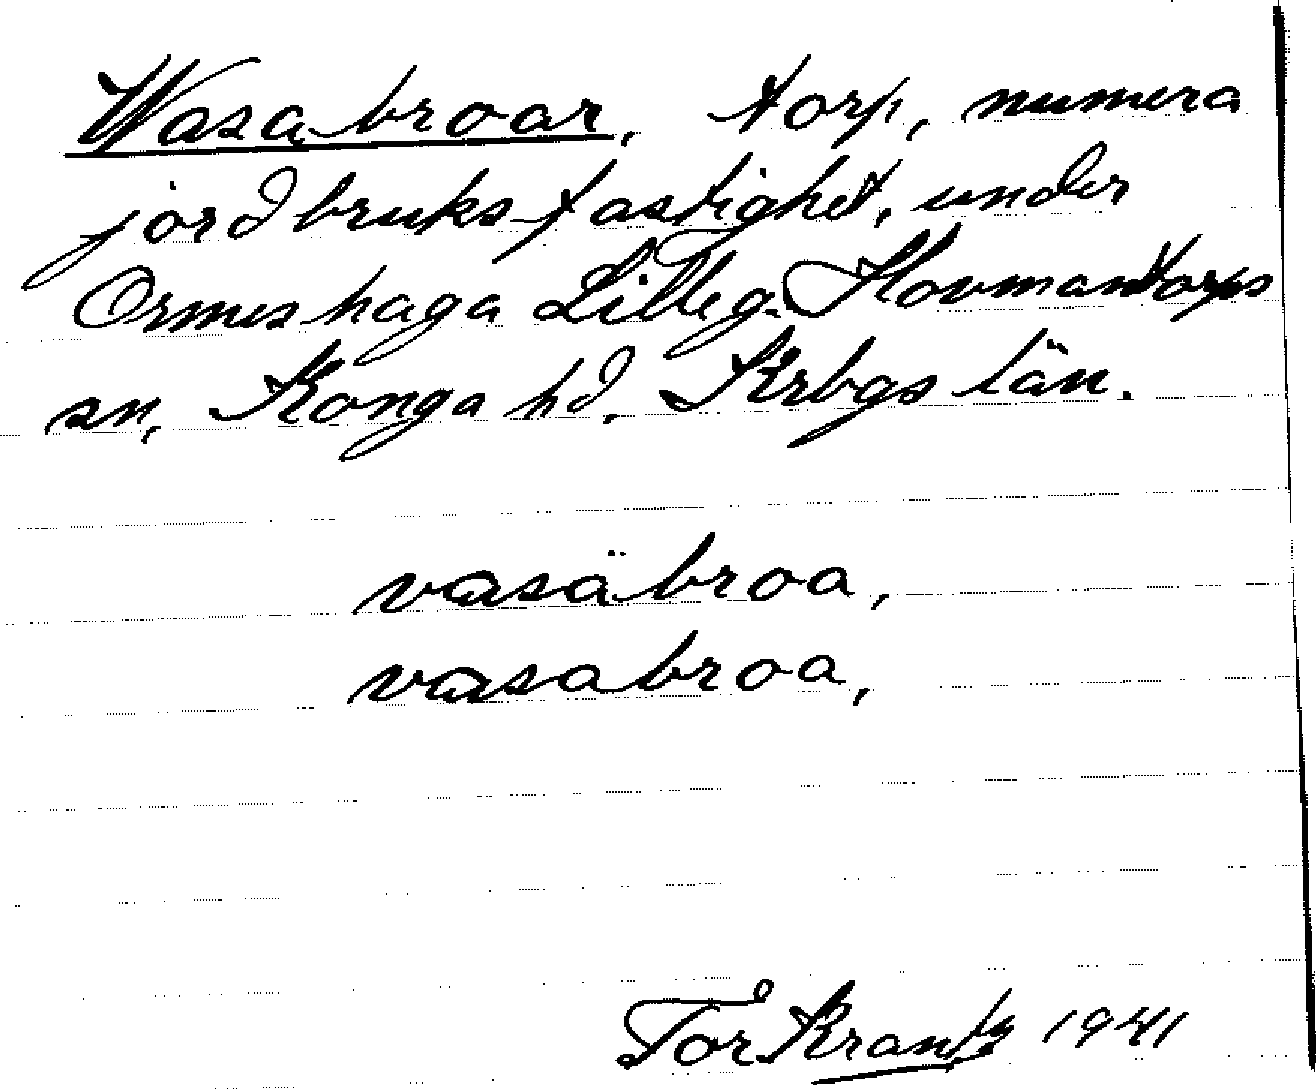 Wasabroar, torp, numera
jordbruksfastighet, under
Ormeshaga Lilleg. Hovmantorps
sn, Konga hd. Krbgs län.
vasäbroa,
vasabroa,
Tor Krantz 1941